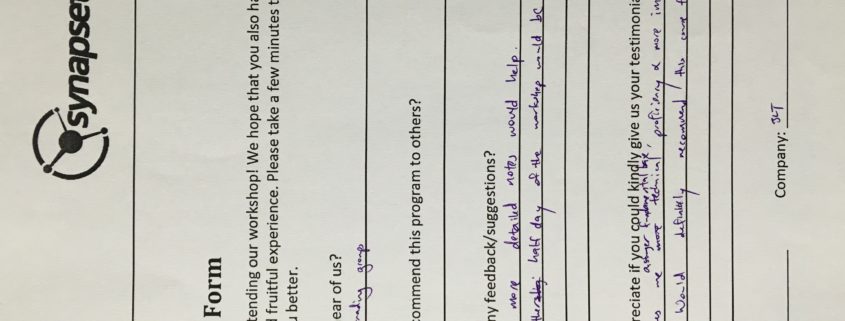 synapse
Form
tending our workshop! We hope that you also ha
d fruitful experience. Please take a few minutes t
u better.
ear of us?
group
commend this program to others?
ny feedback/suggestions?
more detailed notes would help.
half day of the workshop would be
reciate if you could kindly give us your testimonia
us me more technical proficiency & more
Would definitely recommend this
Company: JLT